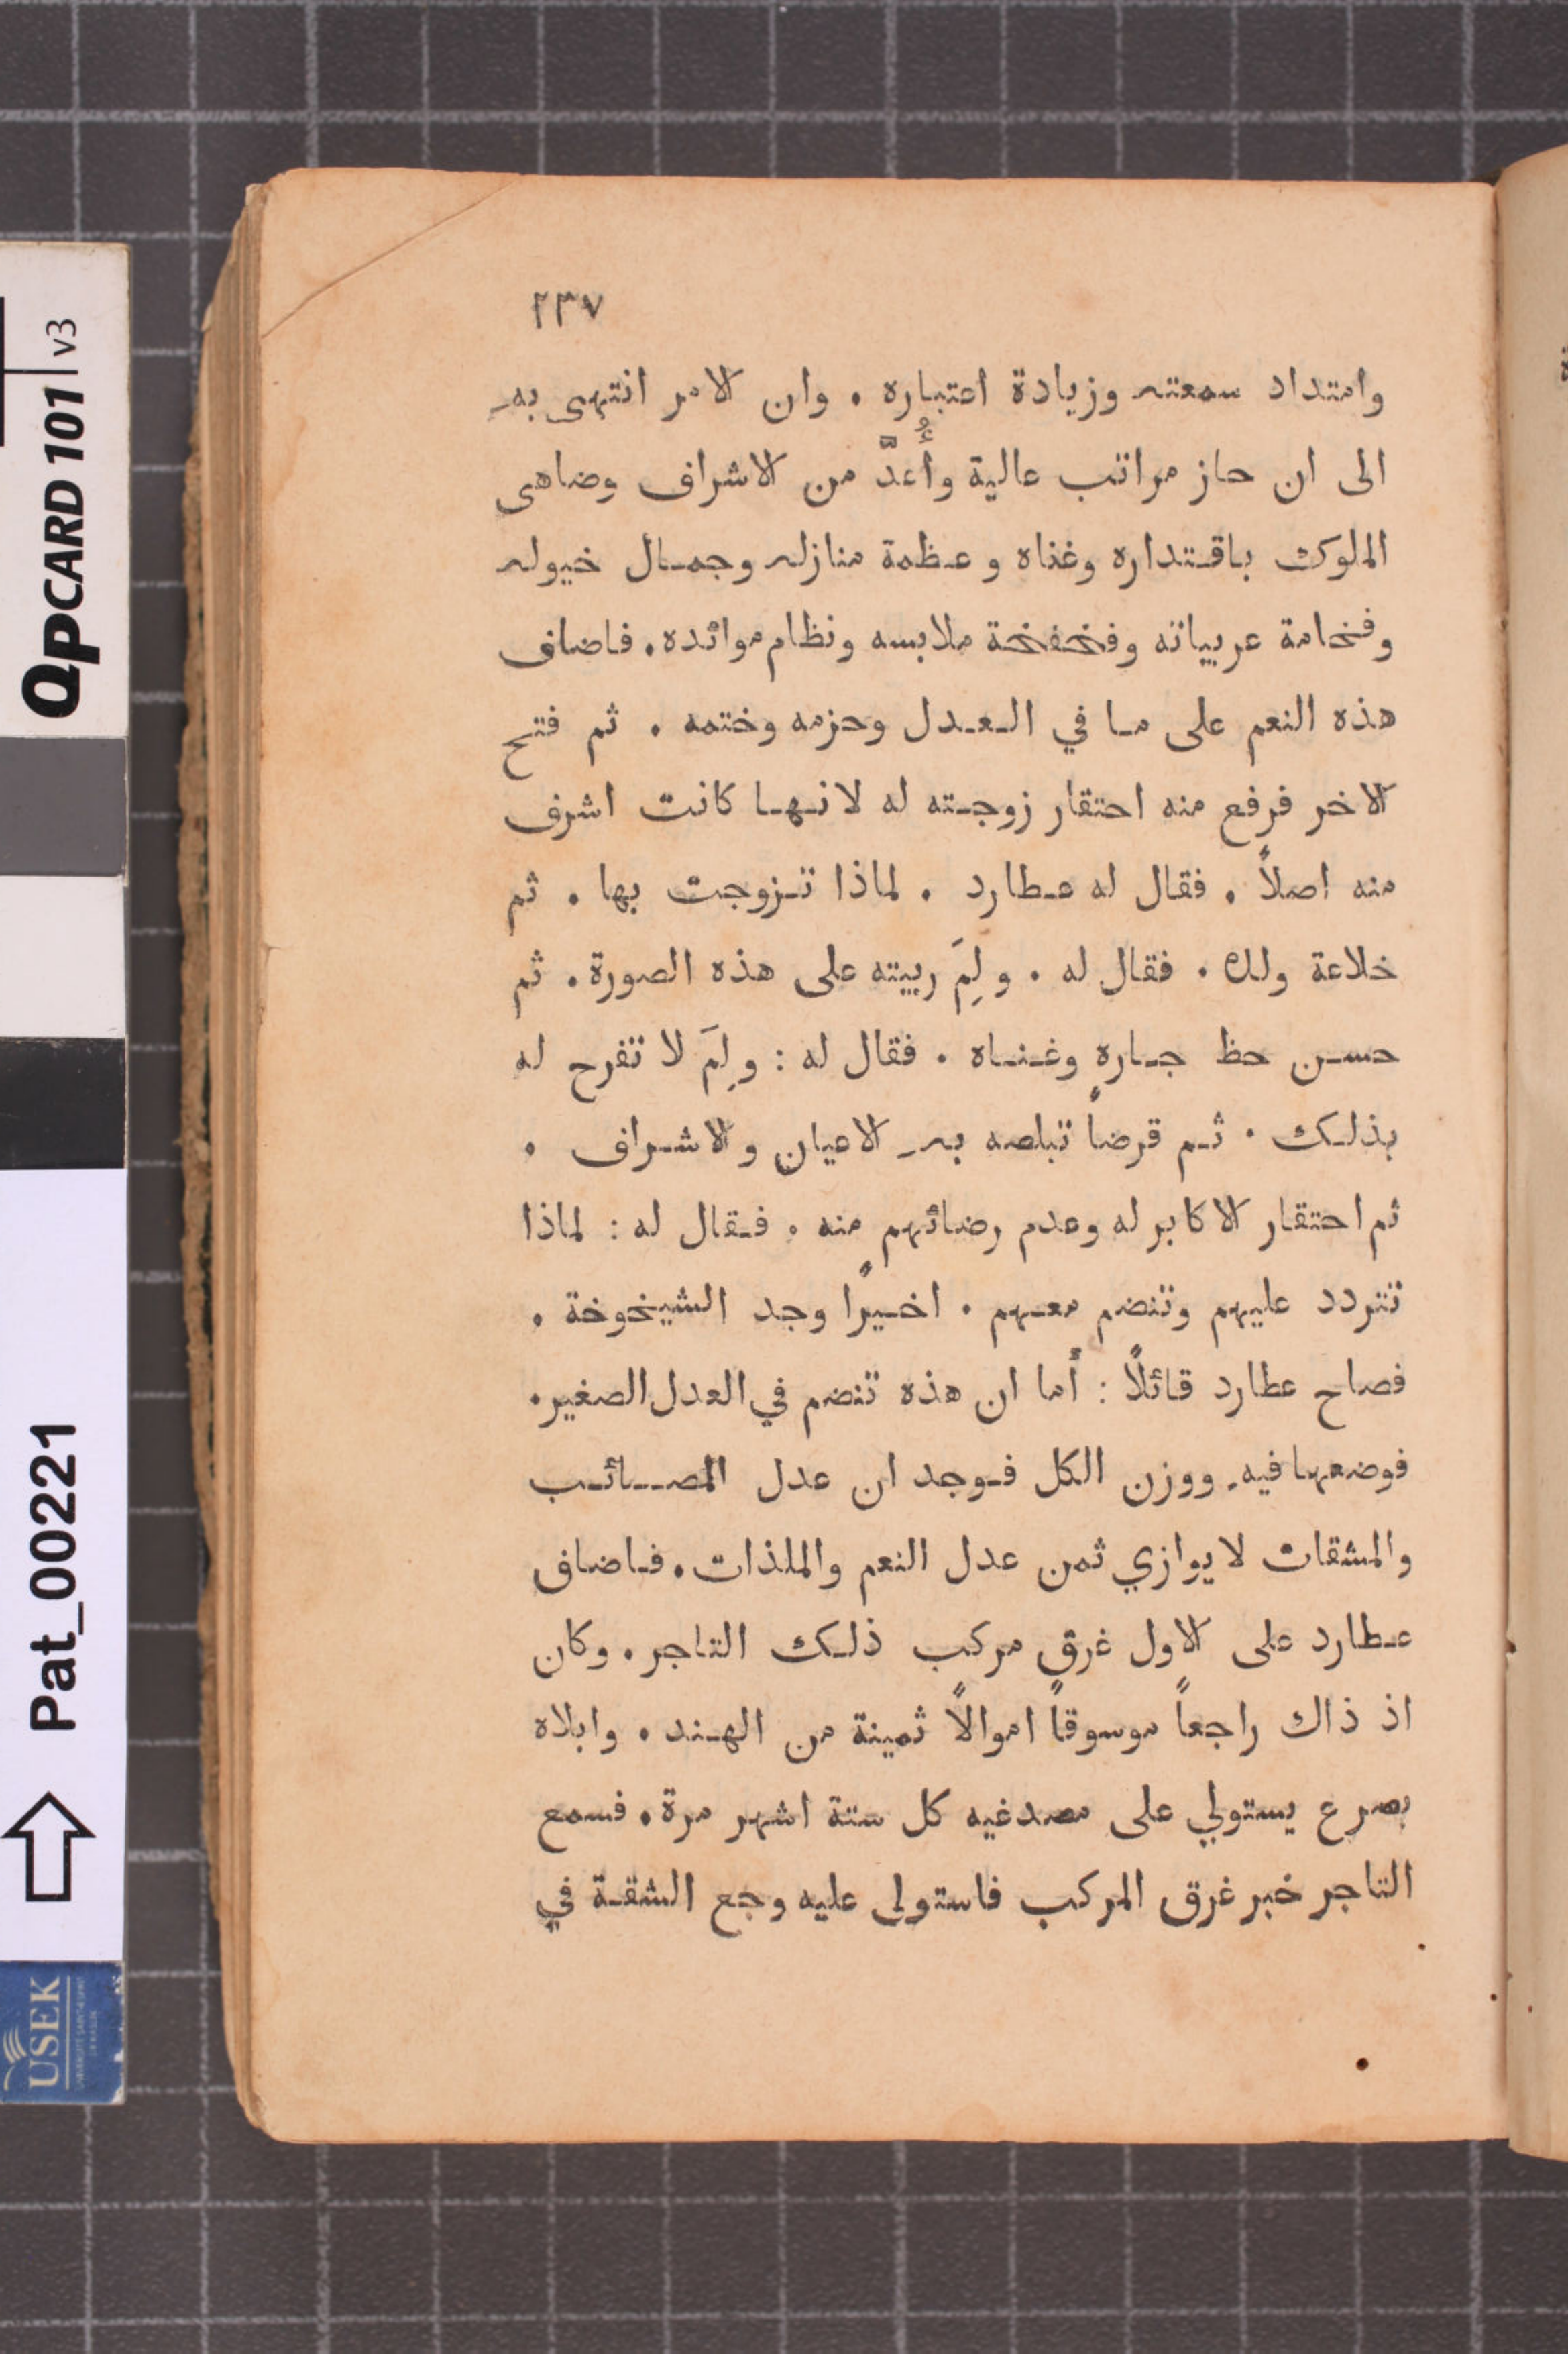 ٢٣٧
وامتداد سمعته وزيادة اعتباره . وان الامر انتهى به
الى ان حاز مراتب عالية وأُعدَّ من الاشراف وضاهى
الملوك باقتداره وغناه وعظمة منازله وجمال خيوله
وفخامة عربياته وفخفخة ملابسه ونظام موائده . فاضاف
هذه النعم على ما في العدل وحزمه وختمه . ثم فتح
الاخر فرفع منه احتقار زوجته له لانها كانت اشرف
منه اصلاً . فقال له عطارد . لماذا تزوجت بها . ثم
خلاعة ولده . فقال له . ولِمَ ربيته على هذه الصورة . ثم
حسن حظ جاره وغناه . فقال له : ولِمَ لا تفرح له
بذلك . ثم قرضاً تبلصه به الاعيان والاشراف .
ثم احتقار الاكابر له وعدم رضائهم منه . فقال له : لماذا
تتردد عليهم وتنضم معهم . اخيرًا وجد الشيخوخة .
فصاح عطارد قائلاً : أما ان هذه تنضم في العدل الصغير .
فوضعها فيه . ووزن الكل فوجد ان عدل المصائب
والمشقات لا يوازي ثمن عدل النعم والملذات . فاضاف
عطارد على الاول غرق مركب ذلك التاجر . وكان
اذ ذاك راجعاً موسوقاً اموالاً ثمينة من الهند . وابلاه
بصرع يستولي على مصدغيه كل ستة اشهر مرة . فسمع
التاجر خبر غرق المركب فاستولى عليه وجع الشقة في
QPCARD 101 v3
Pat_00221
USEK